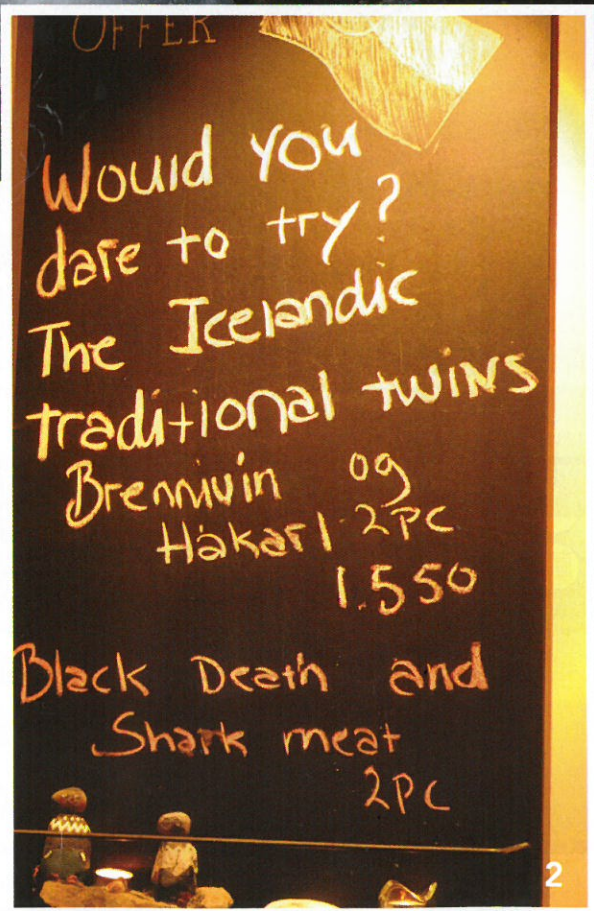 OFFER
Would you
dare to try?
The Icelandic
traditional twins
Brennivin og
Hákarl 2PC
1.550
Black Death and
Shark meat
2PC
2